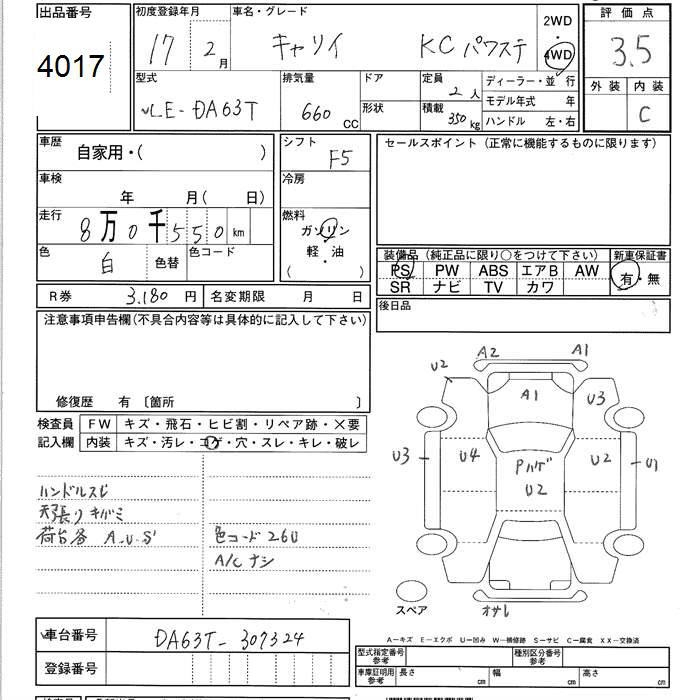 出品番号 初度登録年月 車名・グレード 2WD ・ 4WD 評価点
4017 17 2月 キャリイ KCパワステ 3.5
型式 排気量 ドア 定員 2人 ディーラー・並行 外装 内装
LE-DA63T 660cc 形状 積載 350kg モデル年式 年 C
ハンドル 左・右
車歴 自家用・( ) シフト F5 セールスポイント(正常に機能するものに限ります)
車検 年 月( 日) 冷房
走行 8万0千550km 燃料 ガソリン
軽・油
( )
色 白 色替 色コード
装備品(純正品に限り○をつけて下さい) 新車保証書
PS PW ABS エアB AW 有・無
SR ナビ TV カワ
R券 3,180円 名変期限 月 日 後日品
注意事項申告欄(不具合内容等は具体的に記入して下さい)
修復歴 有〔箇所 〕
検査員 FW キズ・飛石・ヒビ割・リペア跡・×要
記入欄 内装 キズ・汚レ・コゲ・穴・スレ・キレ・破レ
ハンドルスレ
天張りキバミ
荷台各 A.U.S 色コード26U
A/Cナシ
A2 A1
U2 A1 U3
U3 U4 Pハゲ U2 U1
U2
スペア オサレ
A-キズ E-エクボ U-凹み W-補修跡 S-サビ C-腐食 XX-交換済
車台番号 DA63T-307324
登録番号
型式指定番号 参考 種別区分番号 参考
車庫証明用 参考 長さ cm 幅 cm 高さ cm